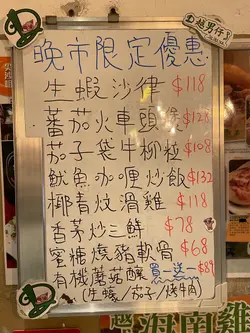 越男仔
晚市限定優惠
生蝦沙律 $118
蕃茄火車頭 $128
茄子袋牛柳粒 $108
魷魚咖喱炒飯 $132
椰青炆滑雞 $118
香茅炒三鮮 $78
蜜糖燒豬軟骨 $68
有機蘑菇釀 買一送一 $89
(生蠔/茄子/燒牛肉)
越 海南雞